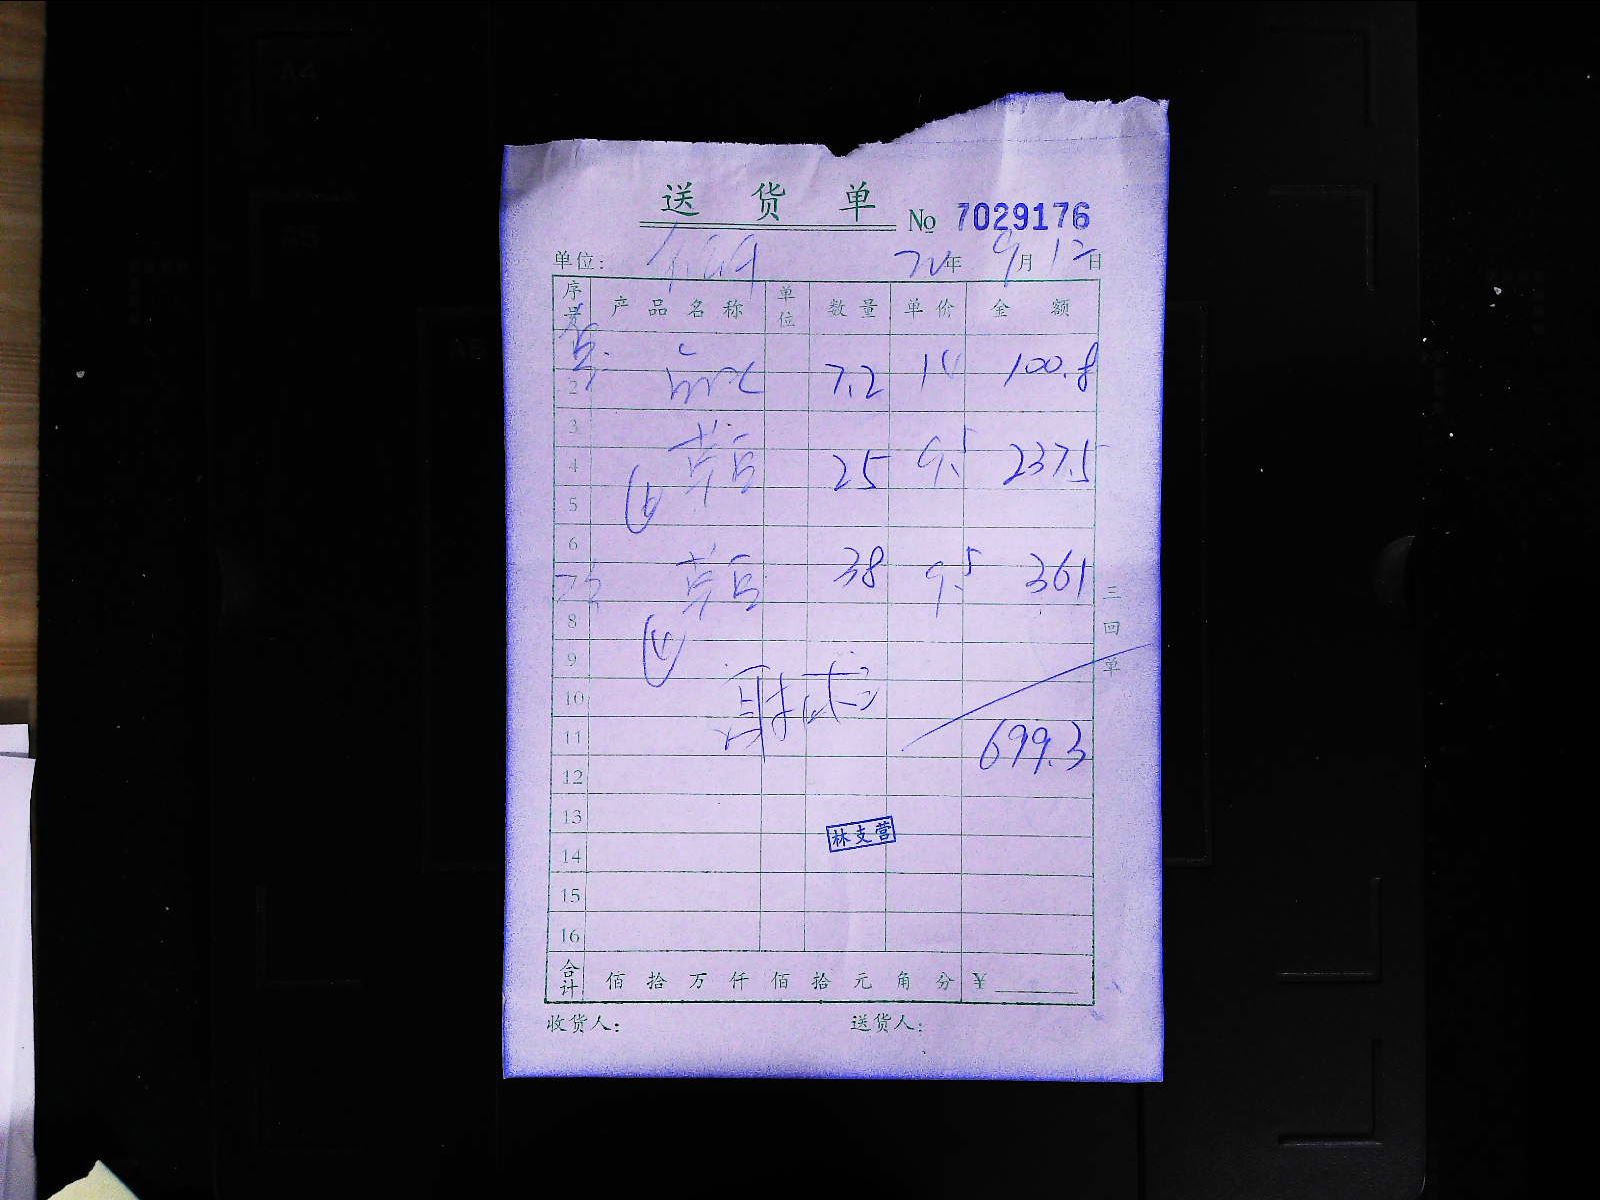 送 货 单 No 7029176
单位： 年 9月12日
序号 产品名称 单位 数量 单价 金额
7.2 14 100.8
2
3
草豆 25 9.5 237.5
4
5
6
草豆 38 9.5 361
8
9
10
699.3
11
12
13
林支营
14
15
16
合计 佰 拾 万 仟 佰 拾 元 角 分 ¥
收货人： 送货人：
三回单